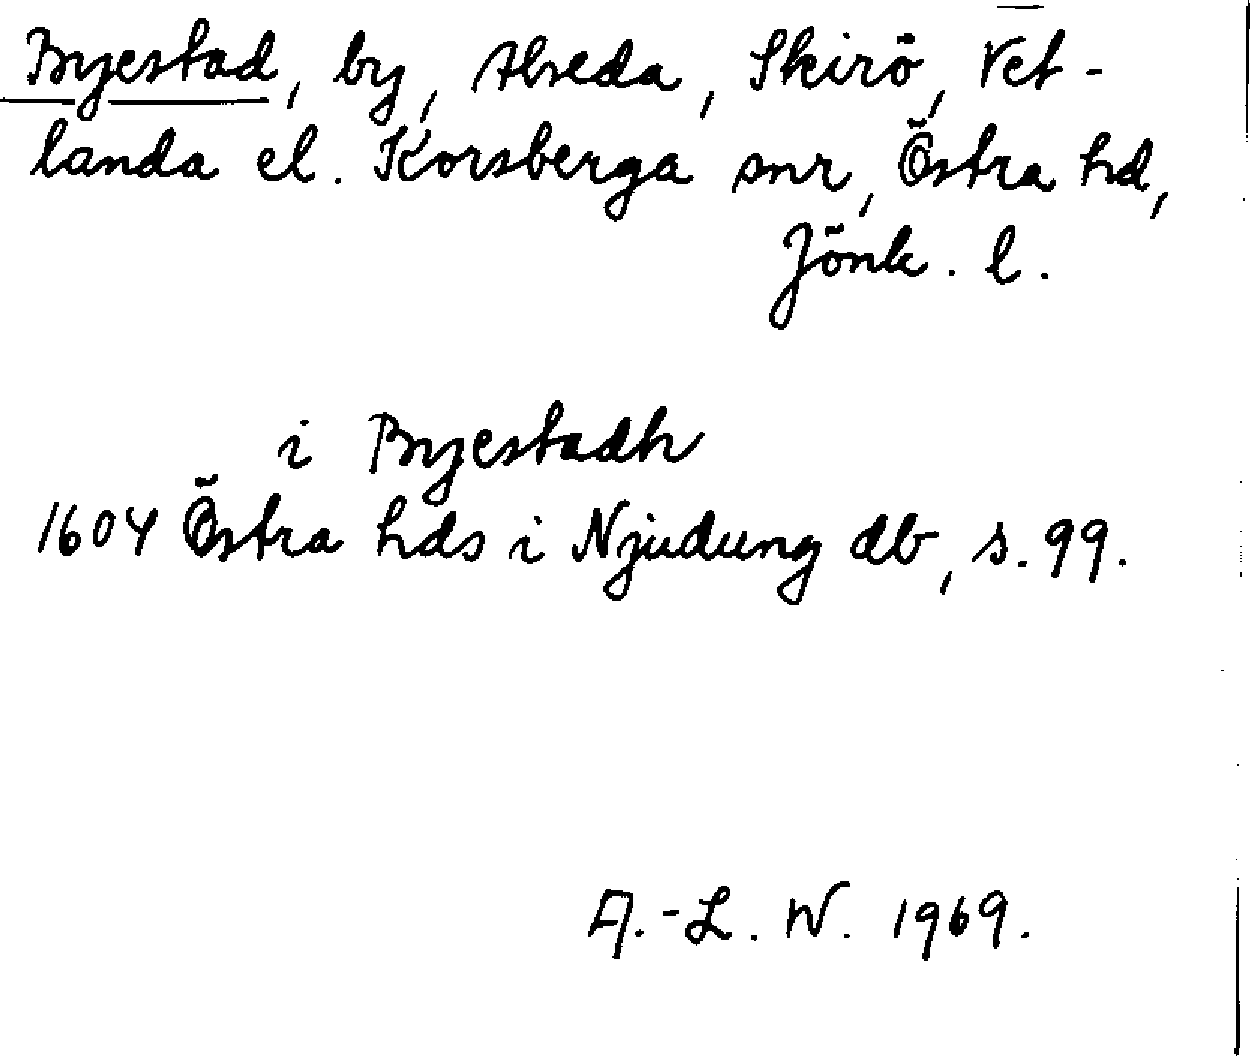 Byestad, by, Alseda, Skirö, Vet-
landa el. Korsberga snr, Östra hd,
Jönk. l.
i Byestadh
1604 Östra hds i Njudung db, s. 99.
A.-L. W. 1969.